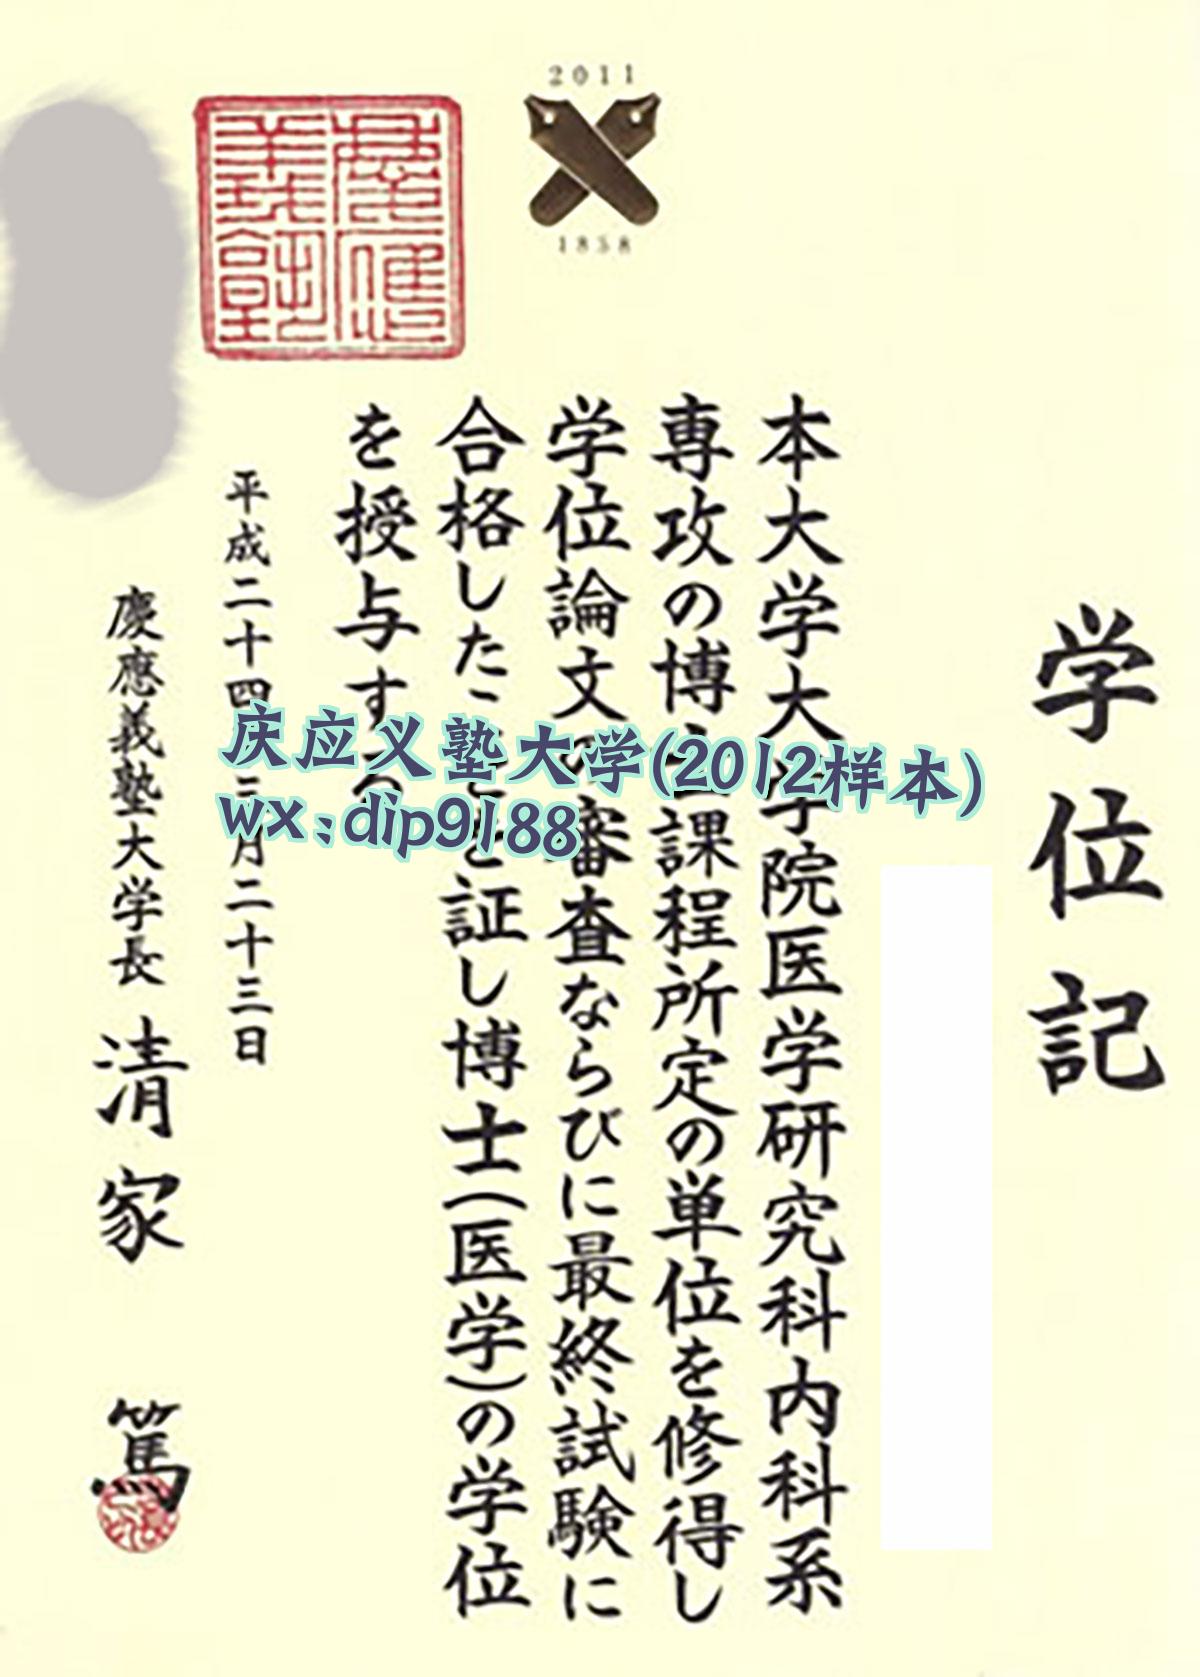 2011
1858
慶應義塾
学位記
本大学大学院医学研究科内科系
専攻の博士課程所定の単位を修得し
学位論文の審査ならびに最終試験に
合格したことを証し博士(医学)の学位
を授与する
平成二十四年三月二十三日
慶應義塾大学長 清家 篤
庆应义塾大学(2012样本)
wx:dip9188